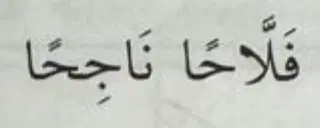 فَلَّاحًا نَاجِحًا